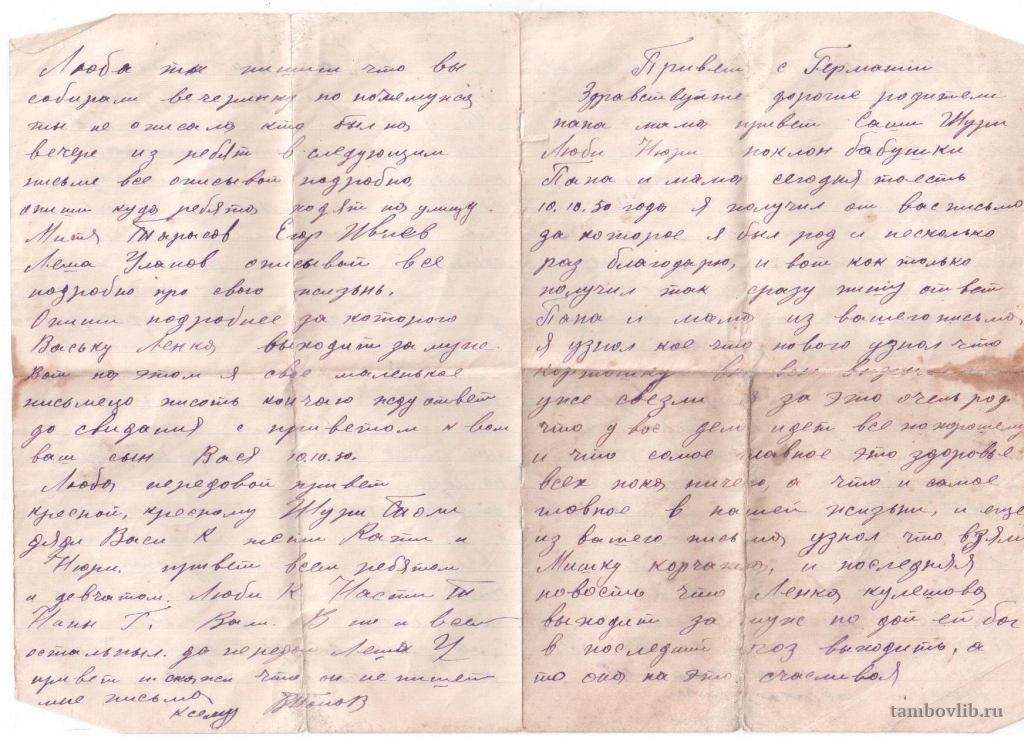 Привет с Германии
Здравствуйте дорогие родители
папа мама привет Саши Шури
Люби Нюри поклон бабушки
Папа и мама сегодня тоесть
10.10.50 года я получил от вас письмо
за которое я был рад и несколько
раз благодарю, и вот как только
получил так сразу пишу ответ
Папа и мама из вашего письма
я узнал кое что нового узнал что
картошку
уже свезли я за это очень рад
что у вас дело идет все по хорошему
и что самое главное это здоровье
всех пока ничего, а что и самое
главное в нашей жизьни, и еще
из вашего письма узнал что взяли
Мишку и последняя
новость что Ленка кулешова
выходит за муж но дай ей бог
в последний раз выходить, а
то она на это счасливая
Люба ты пишиш что вы
собирали вечеринку но почемужа
ты не описала кто был на
вечере из ребят в следующим
письме все описывай подробно,
опиши куда ребята ходят на улицу.
Митя Тарасов Егор
Леша Уланов описывай все
подробно про свою жизьнь.
Опиши подробнее за которого
Ваську Ленка выходит замуж.
Вот на этом я свое маленькое
письмецо писать кончаю жду ответ
до свидания с приветом к вам
ваш сын Вася 10.10.50.
Люба передовай привет
кресной, кресному Шури Толи
дяди Васи К жени Кати и
Нюри. привет всем ребятам
и девчатам. Люби К Насти Т
Нины Г. Вали. В но и всем
остальным. да передай Леши У
привет и скажи что он не пишет
мне письма
к сему